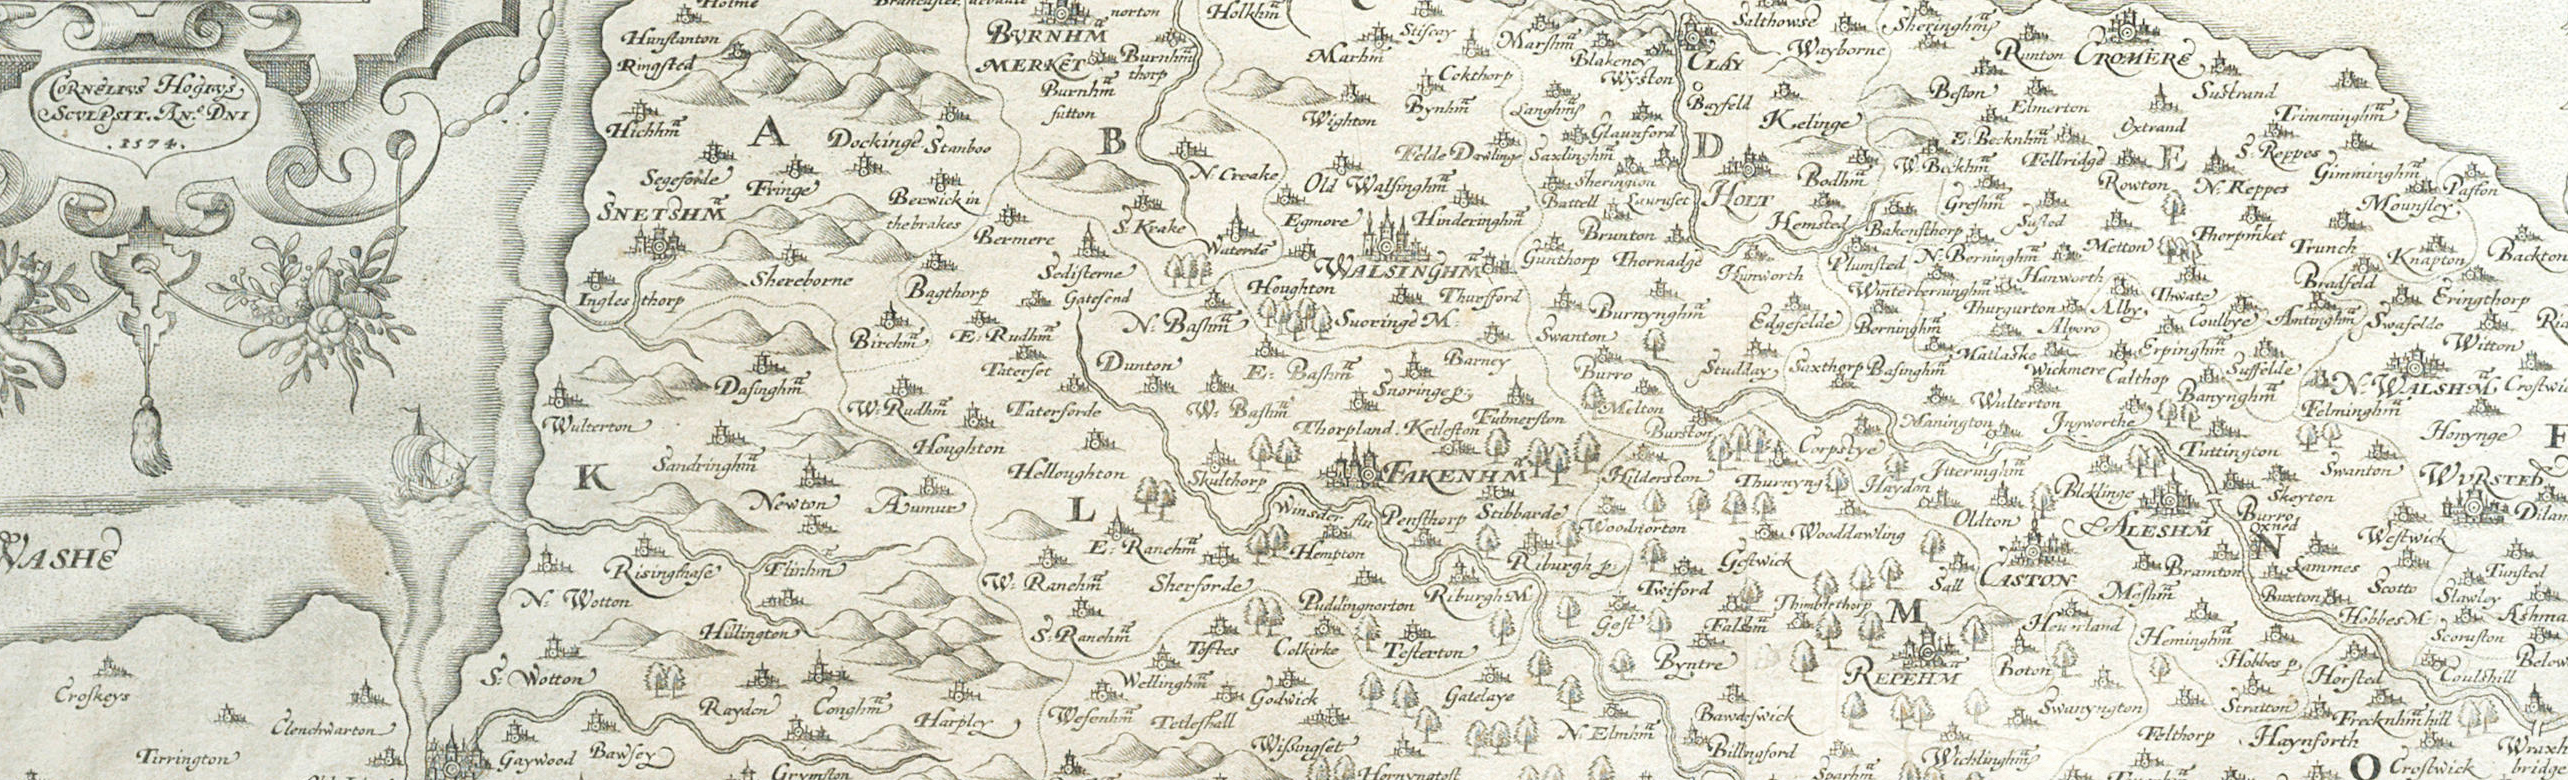 CORNELIVS HOGIVS
SCVLPSIT. AN.º DNI
.1574.
WASHE
Croskeys
Clenchwarton
Tirrington
Holme
Hunstanton
Ringsted
Hichhm̃
A
Dockinge
Stanhoo
Segeforde
Fringe
SNETSHM̃
Berwick in
the brakes
Shereborne
Ingles thorp
Birchm̃
Bagthorp
Dasinghm̃
Wulterton
K
Sandringhm̃
Newton
Aumur
Houghton
W: Rudhm̃
E: Rudhm̃
Taterset
Taterforde
Helloughton
Risinghase
Flinhm̃
N: Wotton
Hillington
S: Wotton
Raydon
Conghm̃
Harpley
Gaywood
Bawsey
Grymston
norton
BVRNHM̃
MERKET
Burnhm̃
thorp
Burnhm̃
sutton
B
N. Creake
S. Krake
Bermere
Sedisterne
Gatesend
Waterdẽ
N: Bashm̃
Dunton
E: Bashm̃
W: Bashm̃
Skulthorp
L
E: Ranehm̃
W: Ranehm̃
S: Ranehm̃
Sherforde
Hempton
Puddingnorton
Toftes
Colkirke
Testerton
Wellinghm̃
Godwick
Wesenhm̃
Tetleshall
Wissingset
Gatelaye
Holkhm̃
Marhm̃
Stifcay
Cokthorp
Wighton
Bynhm̃
Old Walsinghm̃
Egmore
Hinderinghm̃
WALSINGHM̃
Houghton
Thursford
Snoringe M:
Barney
Snoringe p:
Fulmerston
Thorpland
Ketleston
FAKENHM̃
Winsder flu
Pensthorp
Stibbarde
Riburgh p:
Riburgh M
Marshm̃
Blakeney
Wyston
CLAY
Langhm̃
Glaunford
Felde Dawlinge
Saxlinghm̃
Sherington
Battell
Brunton
Gunthorp
Thornadge
Burnynghm̃
Swanton
Burro
Melton
Burston
Hilderston
Woodnorton
Twiford
Gest
Byntre
N: Elmhm̃
Salthowse
Wayborne
Bayfeld
Kelinge
D
HOLT
Bodhm̃
Hemsted
Hunworth
Edgefelde
Studday
Saxthorp
Basinghm̃
Corpstye
Thurnyng
Haydon
Wooddawling
Gestwick
Thimblethorp
M
REPEHM̃
Bawdeswick
Billingford
Sheringhm̃
Runton
CROMERE
Beston
Elmerton
E: Becknhm̃
W: Beckhm̃
Felbridge
Greshm̃
Susted
Bakensthorp
Plumsted
N: Berninghm̃
Winterberninghm̃
Berninghm̃
Hanworth
Thurgurton
Alby
Matlaske
Wickmere
Calthop
Wulterton
Manington
Ingworthe
Itteringhm̃
Oldton
Bleklinge
ALESHM̃
CASTON
Sall
Heuerland
Boton
Swanyngton
Wichlinghm̃
Sustrand
Oxtrand
Trimminghm̃
E
S: Reppes
N: Reppes
Rowton
Gimminghm̃
Paston
Mounsley
Metton
Thorpmket
Trunch
Knapton
Backton
Bradfeld
Eringthorp
Thwate
Coulbye
Antinghm̃
Swafelde
Witton
Erpinghm̃
Suffelde
Banynghm̃
N: WALSHM̃
Crostwic
Felminghm̃
Honynge
Tuttington
Swanton
WVRSTED
Skeyton
Burro
Oxned
Dilam
N
Lammes
Westwick
Bramton
Scotto
Tunsted
Slawley
Buxton
Hobbes M
Scoruston
Heminghm̃
Hobbes p
Horsted
Coulshill
Stratton
Frecknhm̃hill
Felthorp
Haynforth
O
Crostwick